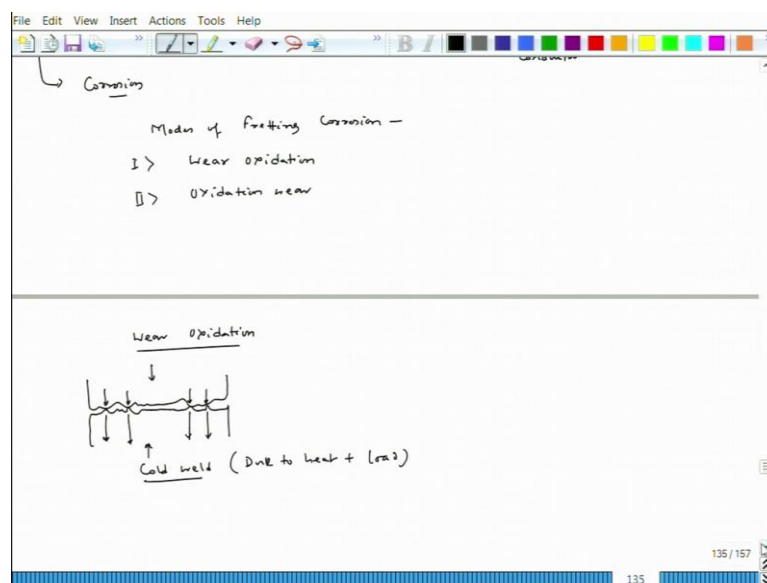 File Edit View Insert Actions Tools Help
B I
Corrosion
Modes of fretting Corrosion —
I> Wear oxidation
II> Oxidation wear
Wear Oxidation
Cold weld (Due to heat + load)
135 / 157
135